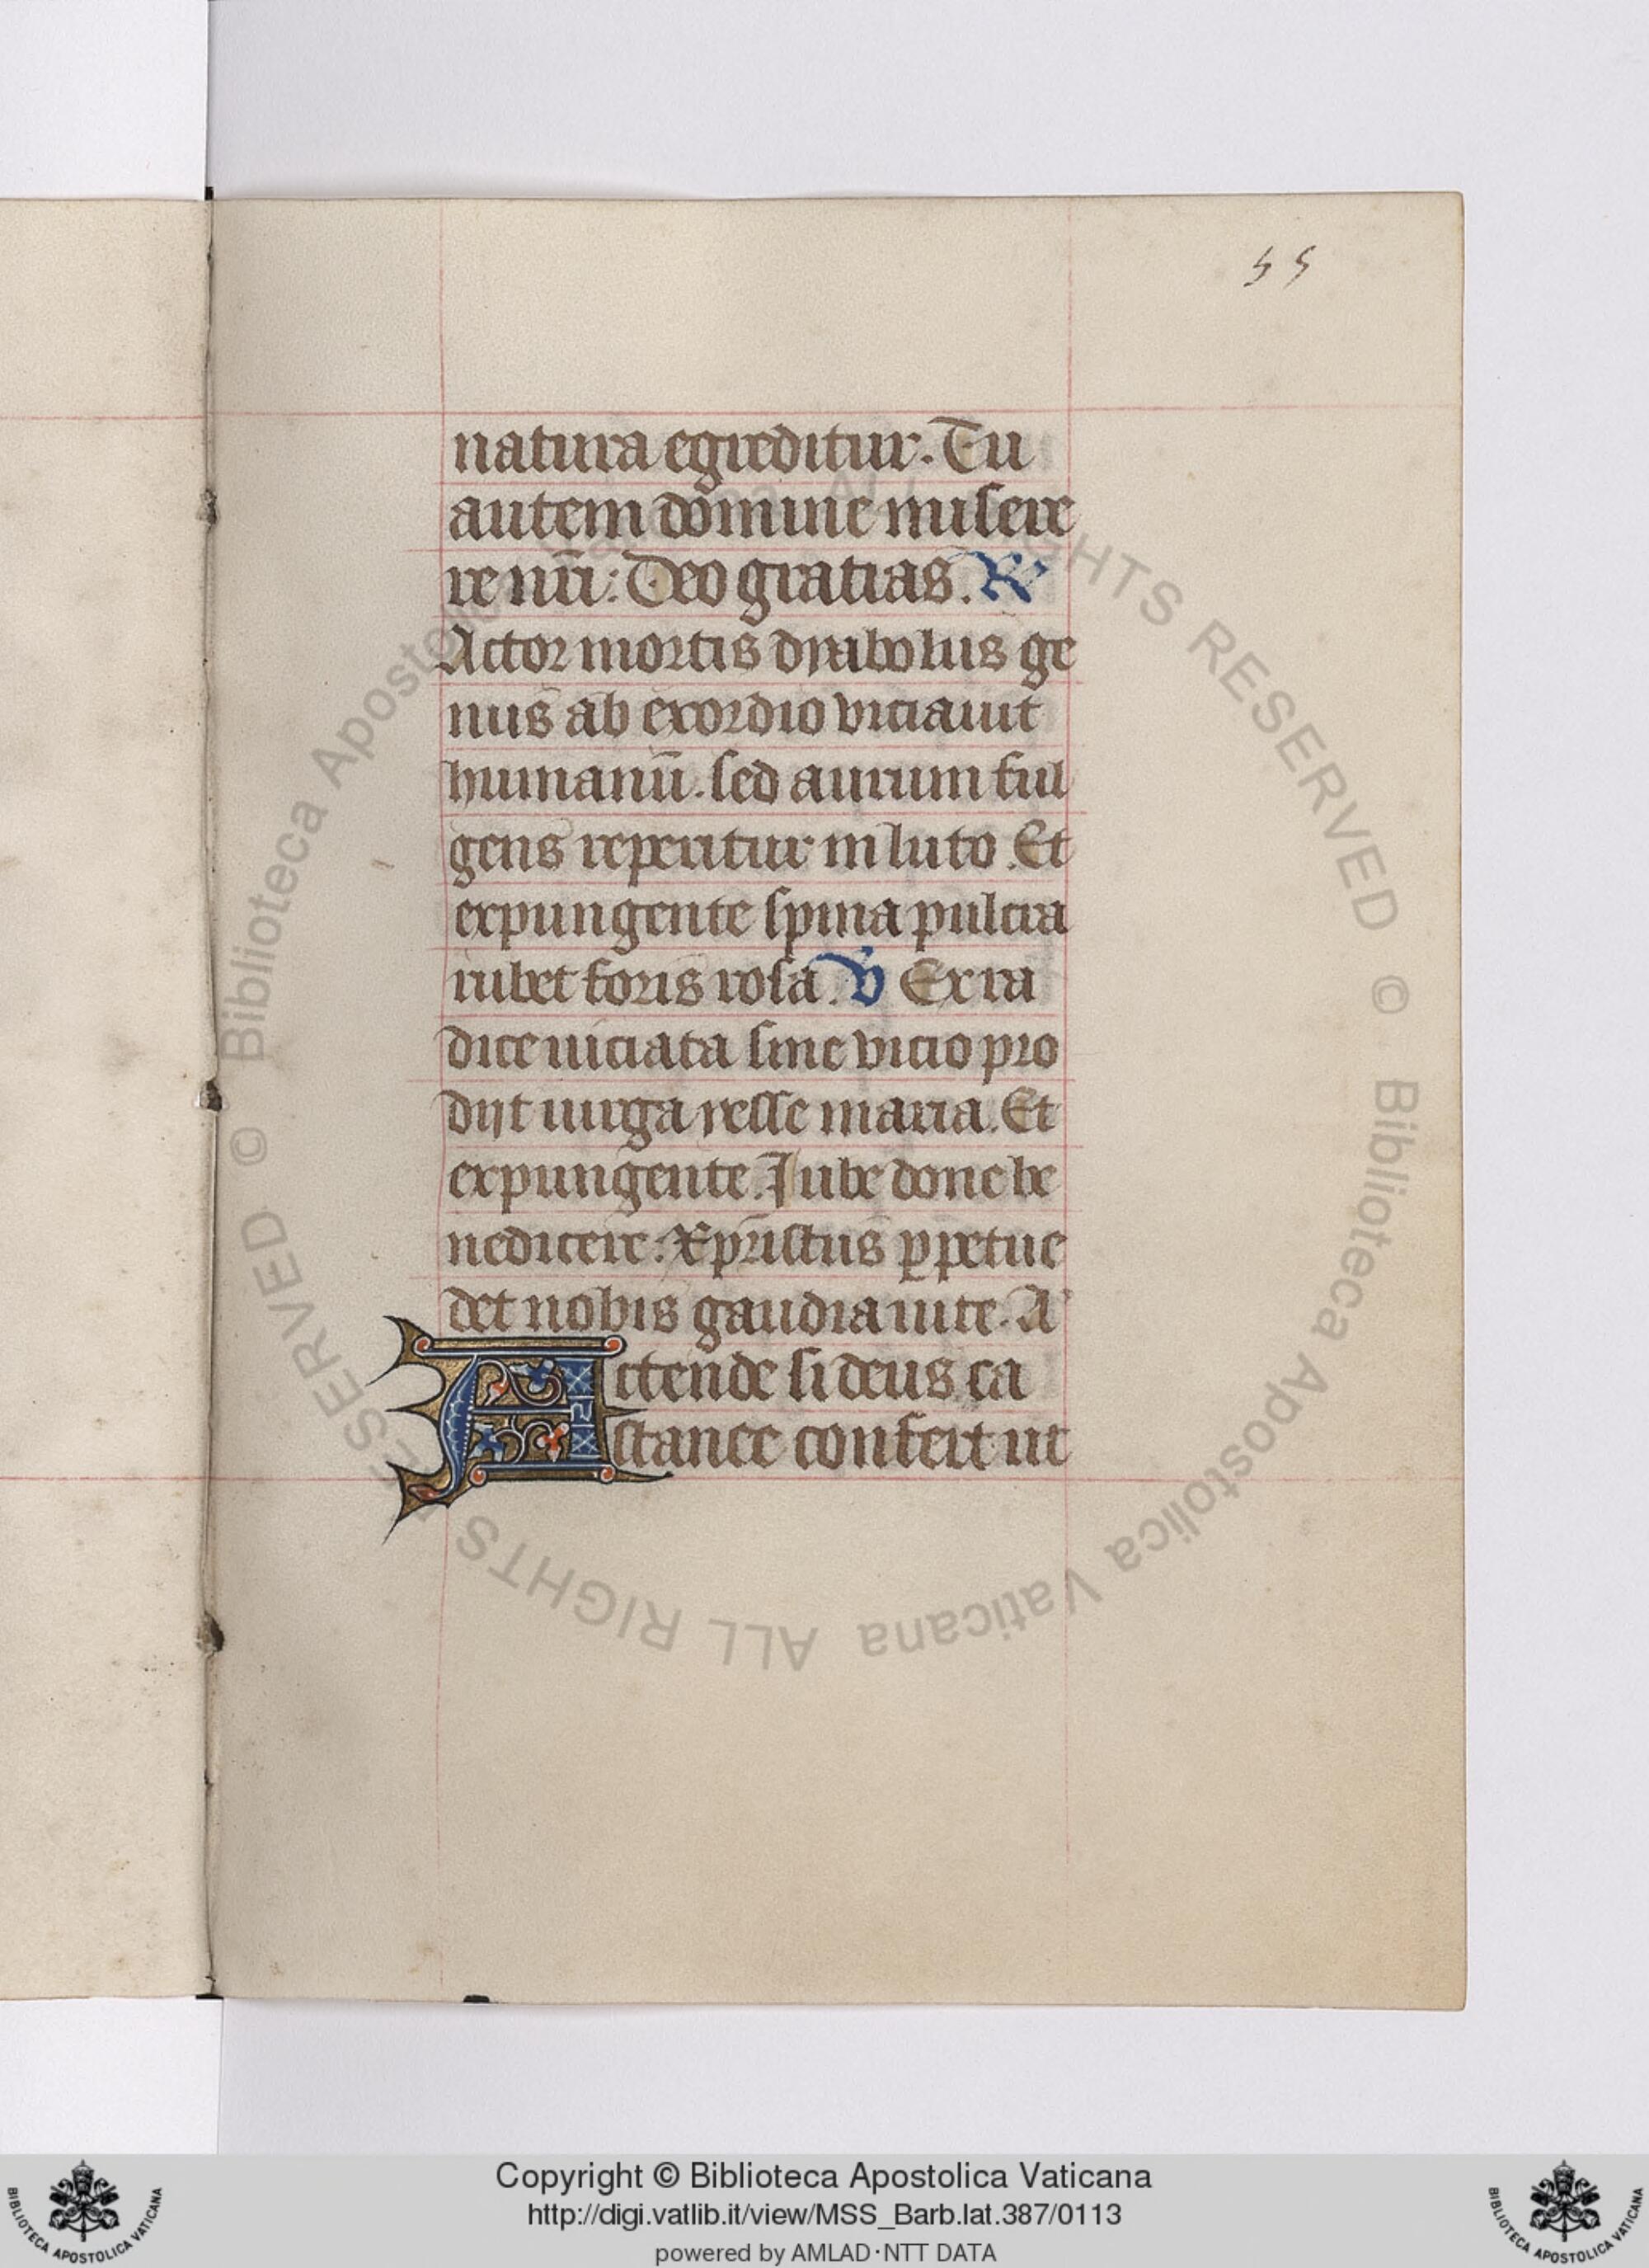 55
natura egreditur. Tu
autem domine misere
re nr̄i: Deo gratias. R
Actor mortis dyabolus ge
nus ab exordio viciauit
humanū. sed aurum ful
gens reperitur in luto. Et
expungente spina pulcra
rubet foris rosa. V Ex ra
dice uiciata sine vicio pro
dijt uirga yesse maria. Et
expungente. Iube done be
nedicere: Xp̄ristus ꝑpetue
det nobis gaudia uite. A
Actende si deus ca
stance confert ut
© Biblioteca Apostolica Vaticana ALL RIGHTS RESERVED © Biblioteca Apostolica Vaticana ALL RIGHTS RESERVED
Copyright © Biblioteca Apostolica Vaticana
http://digi.vatlib.it/view/MSS_Barb.lat.387/0113
powered by AMLAD·NTT DATA
BIBLIOTECA APOSTOLICA VATICANA
BIBLIOTECA APOSTOLICA VATICANA